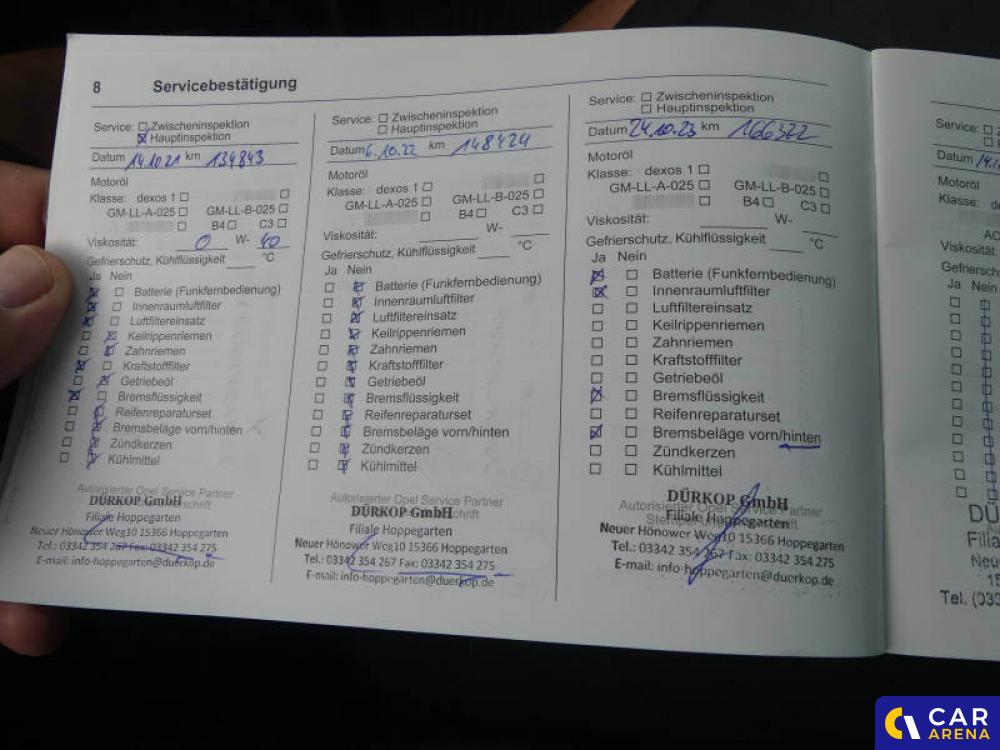 8 Servicebestätigung
Service: Zwischeninspektion
Hauptinspektion
Datum 14.10.21 km 134843
Motoröl
Klasse: dexos 1
GM-LL-A-025 GM-LL-B-025
B4 C3
Viskosität: 0 W- 40
Gefrierschutz, Kühlflüssigkeit °C
Ja Nein
Batterie (Funkfernbedienung)
Innenraumluftfilter
Luftfiltereinsatz
Keilrippenriemen
Zahnriemen
Kraftstofffilter
Getriebeöl
Bremsflüssigkeit
Reifenreparaturset
Bremsbeläge vorn/hinten
Zündkerzen
Kühlmittel
Autorisierter Opel Service Partner
DÜRKOP GmbH
Filiale Hoppegarten
Neuer Hönower Weg10 15366 Hoppegarten
Tel.: 03342 354 267 Fax: 03342 354 275
E-mail: info-hoppegarten@duerkop.de
Service: Zwischeninspektion
Hauptinspektion
Datum 6.10.22 km 148424
Motoröl
Klasse: dexos 1
GM-LL-A-025 GM-LL-B-025
B4 C3
Viskosität: W-
Gefrierschutz, Kühlflüssigkeit °C
Ja Nein
Batterie (Funkfernbedienung)
Innenraumluftfilter
Luftfiltereinsatz
Keilrippenriemen
Zahnriemen
Kraftstofffilter
Getriebeöl
Bremsflüssigkeit
Reifenreparaturset
Bremsbeläge vorn/hinten
Zündkerzen
Kühlmittel
Autorisierter Opel Service Partner
DÜRKOP GmbH
Filiale Hoppegarten
Neuer Hönower Weg10 15366 Hoppegarten
Tel.: 03342 354 267 Fax: 03342 354 275
E-mail: info-hoppegarten@duerkop.de
Service: Zwischeninspektion
Hauptinspektion
Datum 24.10.23 km 166322
Motoröl
Klasse: dexos 1
GM-LL-A-025 GM-LL-B-025
B4 C3
Viskosität: W-
Gefrierschutz, Kühlflüssigkeit °C
Ja Nein
Batterie (Funkfernbedienung)
Innenraumluftfilter
Luftfiltereinsatz
Keilrippenriemen
Zahnriemen
Kraftstofffilter
Getriebeöl
Bremsflüssigkeit
Reifenreparaturset
Bremsbeläge vorn/hinten
Zündkerzen
Kühlmittel
Autorisierter Opel Service Partner
DÜRKOP GmbH
Filiale Hoppegarten
Neuer Hönower Weg10 15366 Hoppegarten
Tel.: 03342 354 267 Fax: 03342 354 275
E-mail: info-hoppegarten@duerkop.de
Service:
Datum
Motoröl
Klasse:
Viskosität:
Ja Nein
Tel. (033
CAR
ARENA